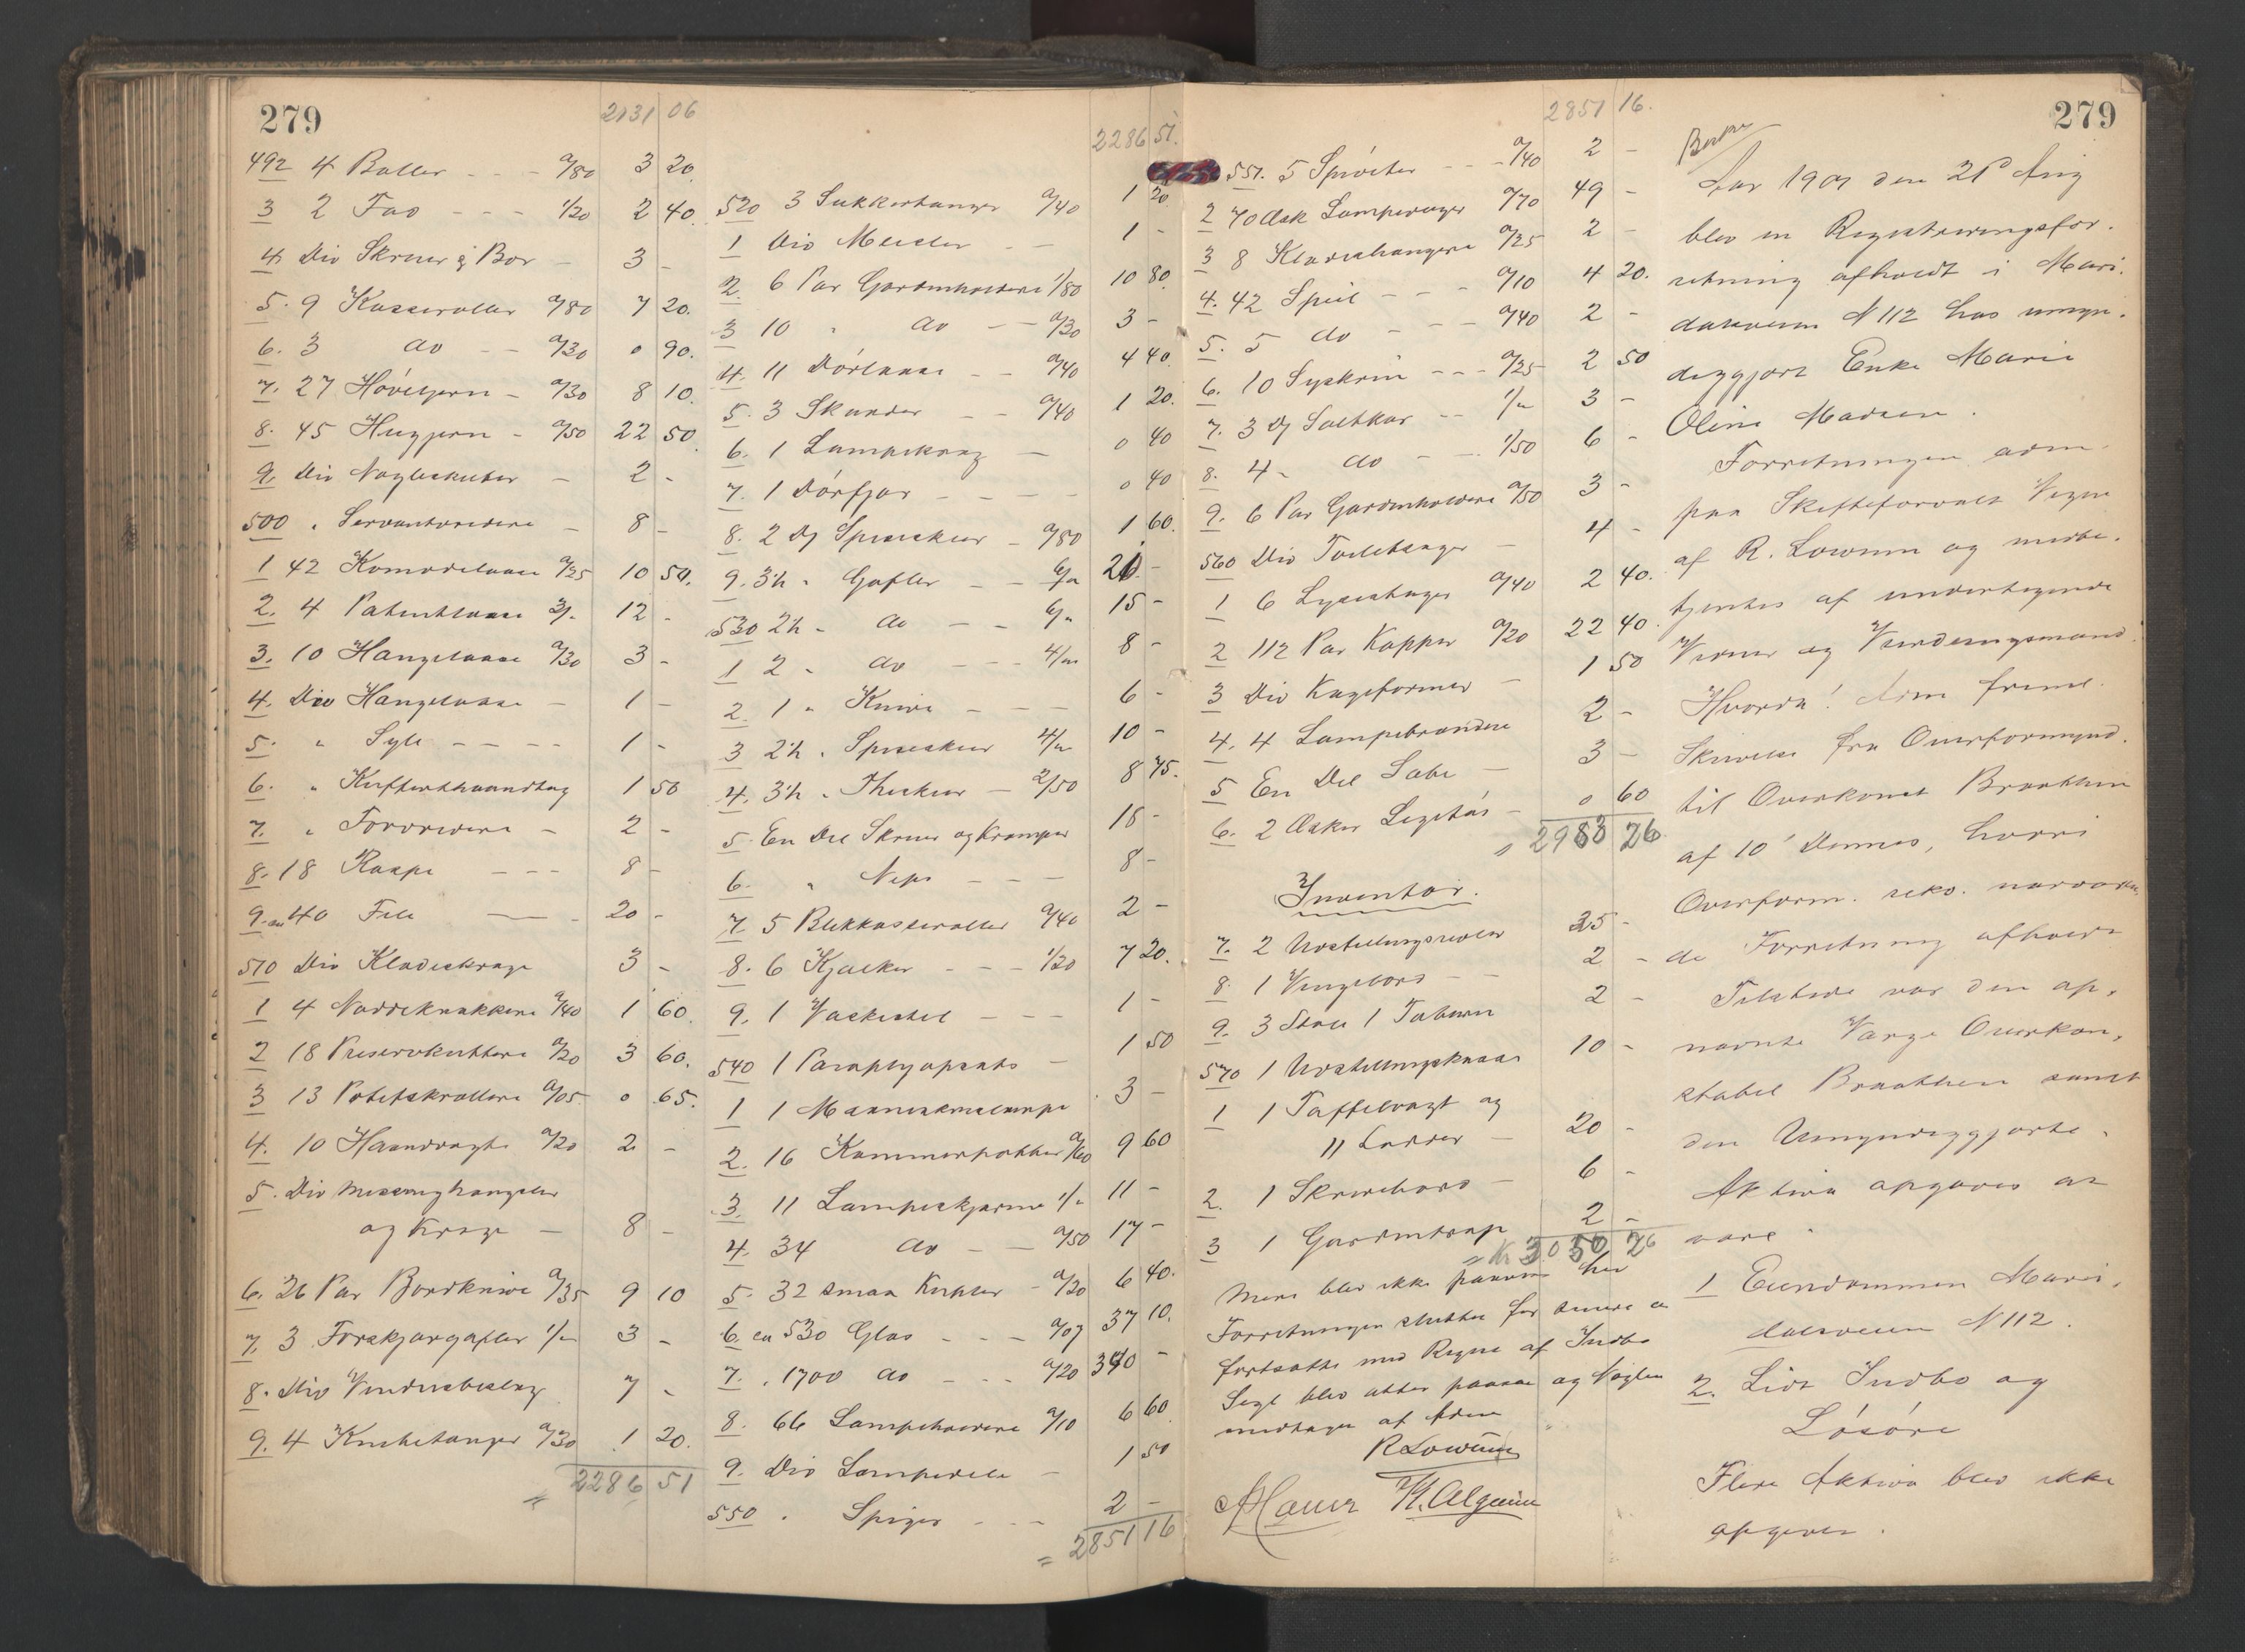 279
2131 06
492 4 Boller - - - a/80 3 20
3 2 Fad - - - 1/20 2 40
4 Div Skruer & Bor - 3 -
5. 9 Kasseroller a/80 7 20.
6. 3 do - - a/30 0 90.
7. 27 Høveljern - a/30 8 10.
8. 45 Hugjern - a/50 22 50
9. Div Nøgleskilter - 2 -
500 " Servantvridere - 8 -
1 42 Komodelaase a/25 10 50.
2. 4 Patentlaase 3/- 12 -
3. 10 Hængelaase a/30 3 -
4. Div Hængelaase - 1 -
5. " Syle - - - - 1 -
6. " Kufferthaandtag 1 50
7. " Forvridere - 2 -
8. 18 Raspe - - - 8 -
9. ca 40 File - - 20 -
510 Div Kladeskrage 3 -
1 4 Nøddeknækkere a/40 1 60.
2 18 a/20 3 60.
3 13 Potetskrællere a/05 0 65.
4. 10 Haandvægte a/20 2 -
5. Div Messinghængsler
og Kroge - 8 -
6. 26 Par Bordknive a/35 9 10
7. 3 Forskjærgafler 1/- 3 -
8. Div Vindusbeslag 7 -
9. 4 Knibetanger a/30 1 20.
= 2286 51
2286 51.
520 3 Sukkertanger a/40 1 20.
1 Div Meisler - - 1 -
2. 6 Par Gardinholdere 1/80 10 80.
3 10 " do - - a/30 3 -
4. 11 Dørlaase - - a/40 4 40.
5. 3 Skander - - a/40 1 20.
6. 1 Lampekrog - 0 40
7. 1 Dørfjær - - - - 0 40
8. 2 Dz Spiseskeer - a/80 1 60.
9. 3½ " Gafler - - 6/- 21 -
530 2½ " do - - 6/- 15 -
1 2 " do - - - 4/- 8 -
2. 1 " Knive - - - 6 -
3 2½ " Spiseskeer 4/- 10 -
4. 3½ " Theskeer - 2/50 8 75.
5. En Del Skruer og Kramper 18 -
6. " Nips - - - 8 -
7. 5 Blikkasseroller a/40 2 -
8. 6 Kjedler - - - 1/20 7 20.
9. 1 Vaskestel - - - 1 -
540 1 Paraplyopsats - 1 50
1 1 3 -
2. 16 Kammerpotter a/60 9 60
3. 11 Lampeskjærme 1/- 11 -
4. 34 do - - a/50 17 -
5. 32 smaa Kupler - a/20 6 40.
6. ca 530 Glas - - - a/07 37 10.
7. " 1700 do - - - a/20 340 -
8. 66 Lampeholdere a/10 6 60.
9. Div Lampedele - 1 50
550 " Spiger - - - 2 -
= 2851 16
2851 16.
551. 5 Sprøiter - - - a/40 2 -
2 70 Æsk Lampevæger a/70 49 -
3 8 Klædeshængere a/25 2 -
4. 42 Speil - - - a/10 4 20.
5. 5 do - - - a/40 2 -
6. 10 Syskrin - - - a/25 2 50
7. 3 Dz Saltkar - - 1/- 3 -
8. 4 " do - - - 1/50 6 -
9. 6 Par Gardinholdere a/50 3 -
560 Div - 4 -
1 6 Lysestager a/40 2 40.
2 112 Par Kopper a/20 22 40.
3 Div Kageformer - 1 50
4. 4 Lampebrændere 2 -
5 En Del Sæbe - 3 -
6. 2 Æsker Legetøi - 0 60
= 2983 26
Inventar.
7. 2 Udstillingsreoler 35 -
8. 1 Vingebord - - 2 -
9. 3 Stole 1 Taburet 2 -
570 1 Udstillingskasse 10 -
1 1 Taffelvægt og
11 Lodder - 20 -
2. 1 Skrivebord - 6 -
3 1 Gardintrap 2 -
= Kr 3050 26
Mere blev ikke paavist her
Forretningen sluttes for senere at
fortsættes med Regns af Indbo
Segl blev atter paasat og Nøglen
medtagen af Adm
R Lowum
A Hauer H. Algeim
279
Aar 1907 den 21de Aug
blev en Registreringsfor-
retning afholdt i Mari-
dalsveien N 112 hos umyn-
diggjort Enke Marie
Oline Madsen.
Forretningen adm.
paa Skifteforvalt Vegne
af R. Lowum og medbe-
tjentes af undertegnede
Vidner og Vurderingsmænd.
Hvorda! Adm freml.
Skrivelse fra Overformynd.
til Overkonst Braathen
af 10' Dennes, hvori
Overform. rekv. nærværen
de Forretning afholdt
Tilstede var den op-
nævnte Værge Overkon-
stabel Braathen samt
den Umyndiggjorte.
Aktiva opgaves at
være.
1 Eiendommen Mari-
dalsveien N 112.
2. Lidt Indbo og
Løsøre
Flere Aktiva blev ikke
opgivet.